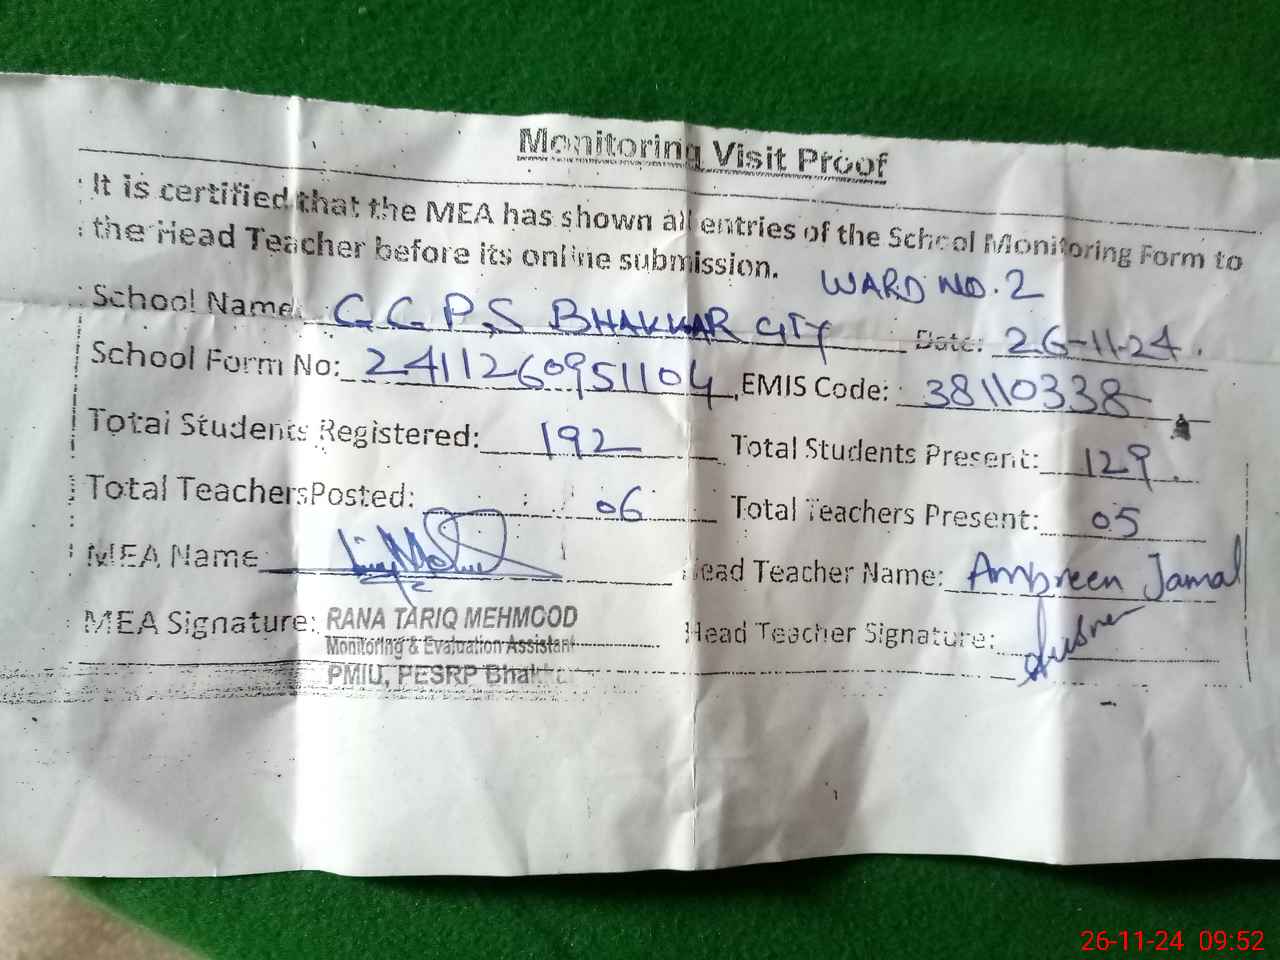 Monitoring Visit Proof
It is certified that the MEA has shown all entries of the School Monitoring Form to
the Head Teacher before its online submission.
WARD NO. 2
School Name: G G P S BHAKKAR CITY Date: 26-11-24.
School Form No: 2411260951104, EMIS Code: 38110338
Total Students Registered: 192 Total Students Present: 129
Total Teachers Posted: 06 Total Teachers Present: 05
MEA Name Head Teacher Name: Ambreen Jamal
MEA Signature: RANA TARIQ MEHMOOD Head Teacher Signature:
Monitoring & Evaluation Assistant
PMIU, PESRP Bhakkar
26-11-24 09:52